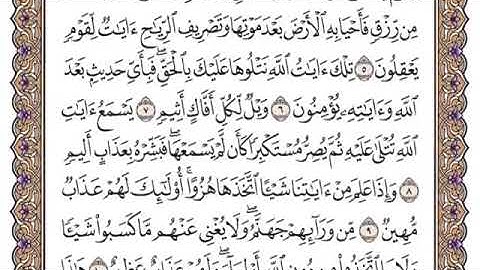 مِن رِّزْقٍ فَأَحْيَا بِهِ ٱلْأَرْضَ بَعْدَ مَوْتِهَا وَتَصْرِيفِ ٱلرِّيَٰحِ ءَايَٰتٌ لِّقَوْمٍ
يَعْقِلُونَ ٥ تِلْكَ ءَايَٰتُ ٱللَّهِ نَتْلُوهَا عَلَيْكَ بِٱلْحَقِّ فَبِأَيِّ حَدِيثٍۭ بَعْدَ
ٱللَّهِ وَءَايَٰتِهِۦ يُؤْمِنُونَ ٦ وَيْلٌ لِّكُلِّ أَفَّاكٍ أَثِيمٍ ٧ يَسْمَعُ ءَايَٰتِ
ٱللَّهِ تُتْلَىٰ عَلَيْهِ ثُمَّ يُصِرُّ مُسْتَكْبِرًا كَأَن لَّمْ يَسْمَعْهَا فَبَشِّرْهُ بِعَذَابٍ أَلِيمٍ
٨ وَإِذَا عَلِمَ مِنْ ءَايَٰتِنَا شَيْـًٔا ٱتَّخَذَهَا هُزُوًا أُو۟لَٰٓئِكَ لَهُمْ عَذَابٌ
مُّهِينٌ ٩ مِّن وَرَآئِهِمْ جَهَنَّمُ وَلَا يُغْنِى عَنْهُم مَّا كَسَبُوا۟ شَيْـًٔا